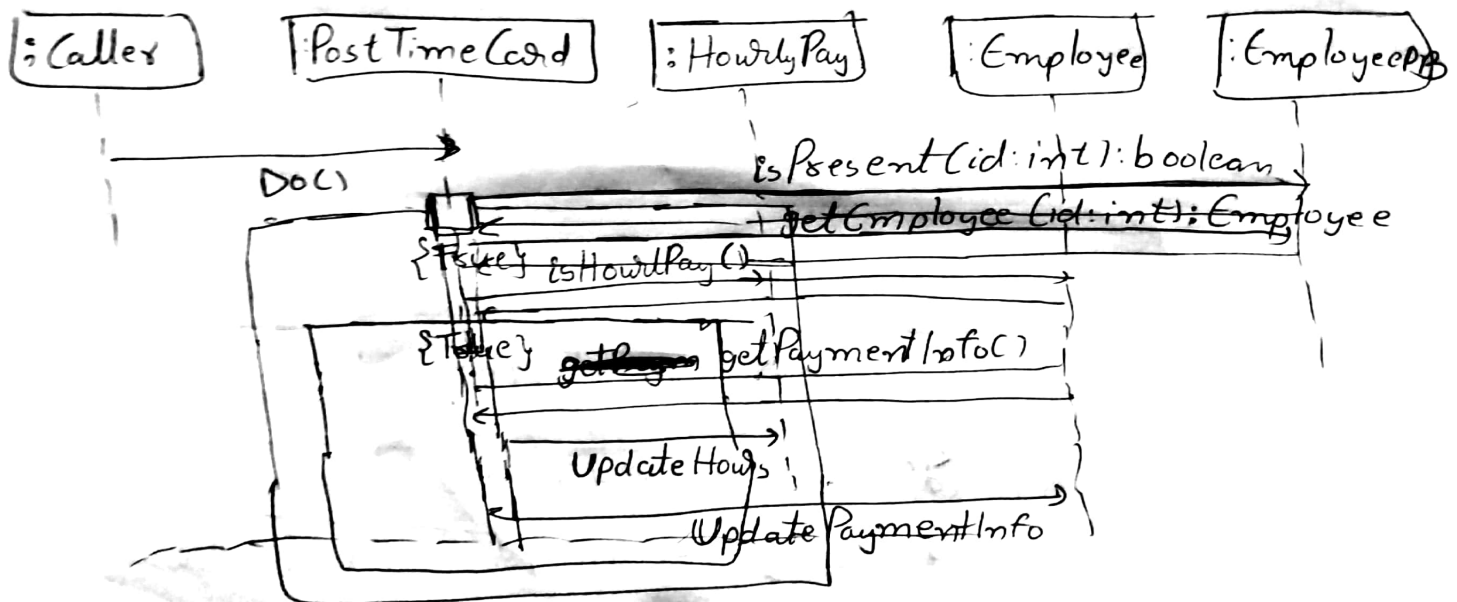 :Caller
:PostTimeCard
:HourlyPay
:Employee
:EmployeeDB
DO()
isPresent(id:int):boolean
getEmployee(id:int):Employee
{True}
isHourlPay()
{True}
getPaymentInfo()
UpdateHours
UpdatePaymentInfo